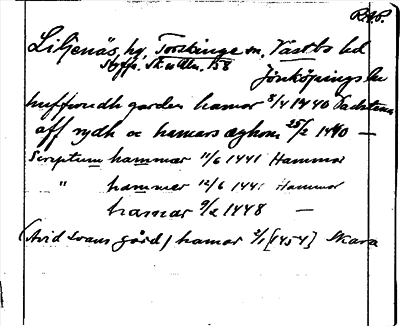 RAP.
Liljenäs, hg. Torskinge sn. Västbo hd
Styffe, Sk. u. Un. 158
Jönköpings län
huffwudh garden hamar 8/4 1440 Vadstena
aff rydh oc hamars æghom 25/2 1440 —
Scriptum hammar 11/6 1441 Hammar
" hammer 12/6 1441 Hammar
hamar 9/2 1448 —
(Arid Swans gård) hamar 2/1 [1454] Skara